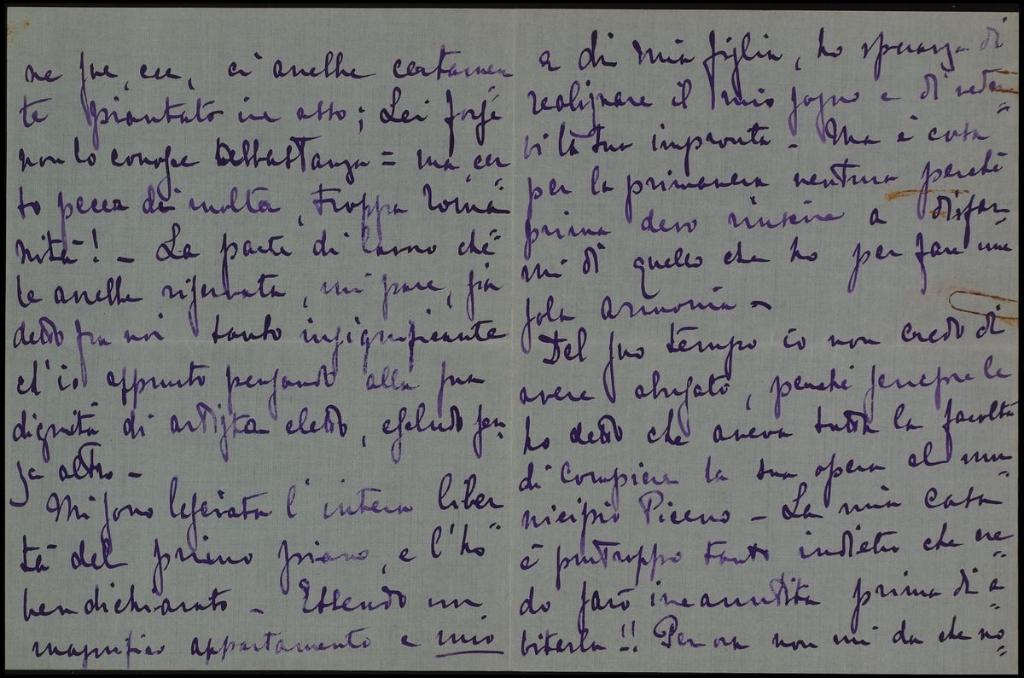 ne fue, ecc, ci avrebbe certamen
te piantato in asso; Lei forse
non lo conosce abbastanza = ma, cer
to pecca di molta, troppa roma=
nità! - La parte di lavoro che
le avrebbe riservata, mi pare, sia
detto fra noi tanto insignificante
ch'io appunto pensando alla sua
dignità di artista eletto, escludo sen=
za altro -
Mi sono lasciata l'intera liber
tà del primo piano, e l'ho
ben dichiarato - Essendo un
magnifico appartamento e mio
e di mia figlia, ho speranza di
realizzare il mio sogno e di
vi la sua impronta - Ma è cosa
per la primavera ventura perché
prima devo riuscire a disfar=
mi di quello che ho per fare una
sola armonia -
Del suo tempo io non credo di
avere abusato, perché sempre le
ho detto che aveva tutta la facoltà
di compiere la sua opera al mu=
nicipio Piceno - La mia casa
è purtroppo tanto indietro che cre=
do sarò incanutita prima di a=
bitarla!! Per ora non mi da che no=